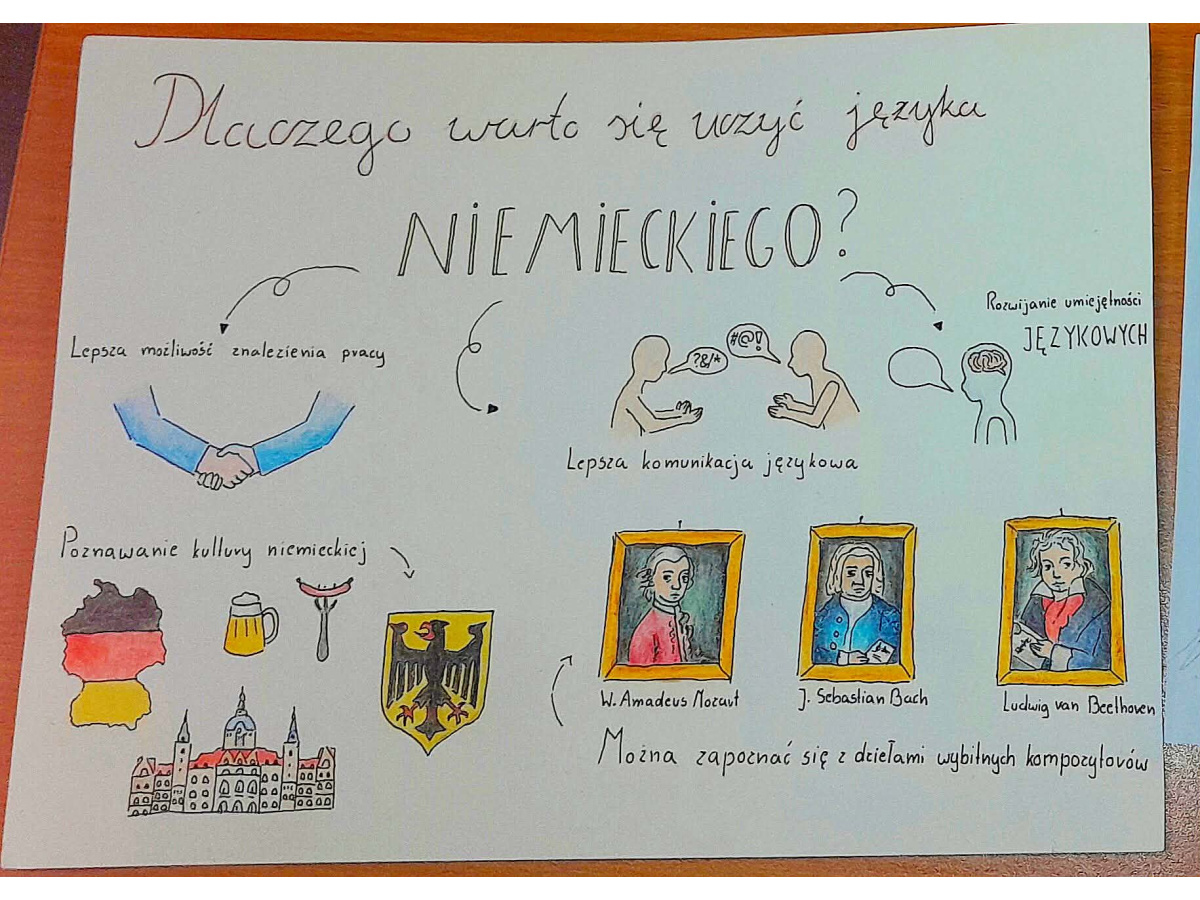 Dlaczego warto się uczyć języka
NIEMIECKIEGO?
Lepsza możliwość znalezienia pracy
?&/*
#@!
Lepsza komunikacja językowa
Rozwijanie umiejętności
JĘZYKOWYCH
Poznawanie kultury niemieckiej
W. Amadeus Mozart
J. Sebastian Bach
Ludwig van Beethoven
Można zapoznać się z dziełami wybitnych kompozytorów